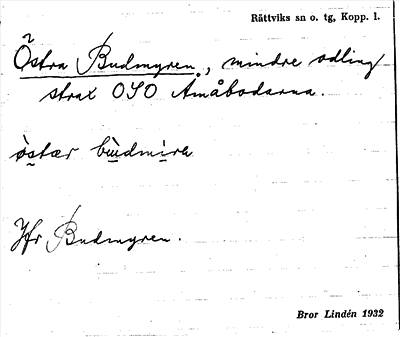 Rättviks sn o. tg, Kopp. l.
Östra Budmyren, mindre odling
strax OSO Åmåbodarna.
Jfr Budmyren.
Bror Lindén 1932